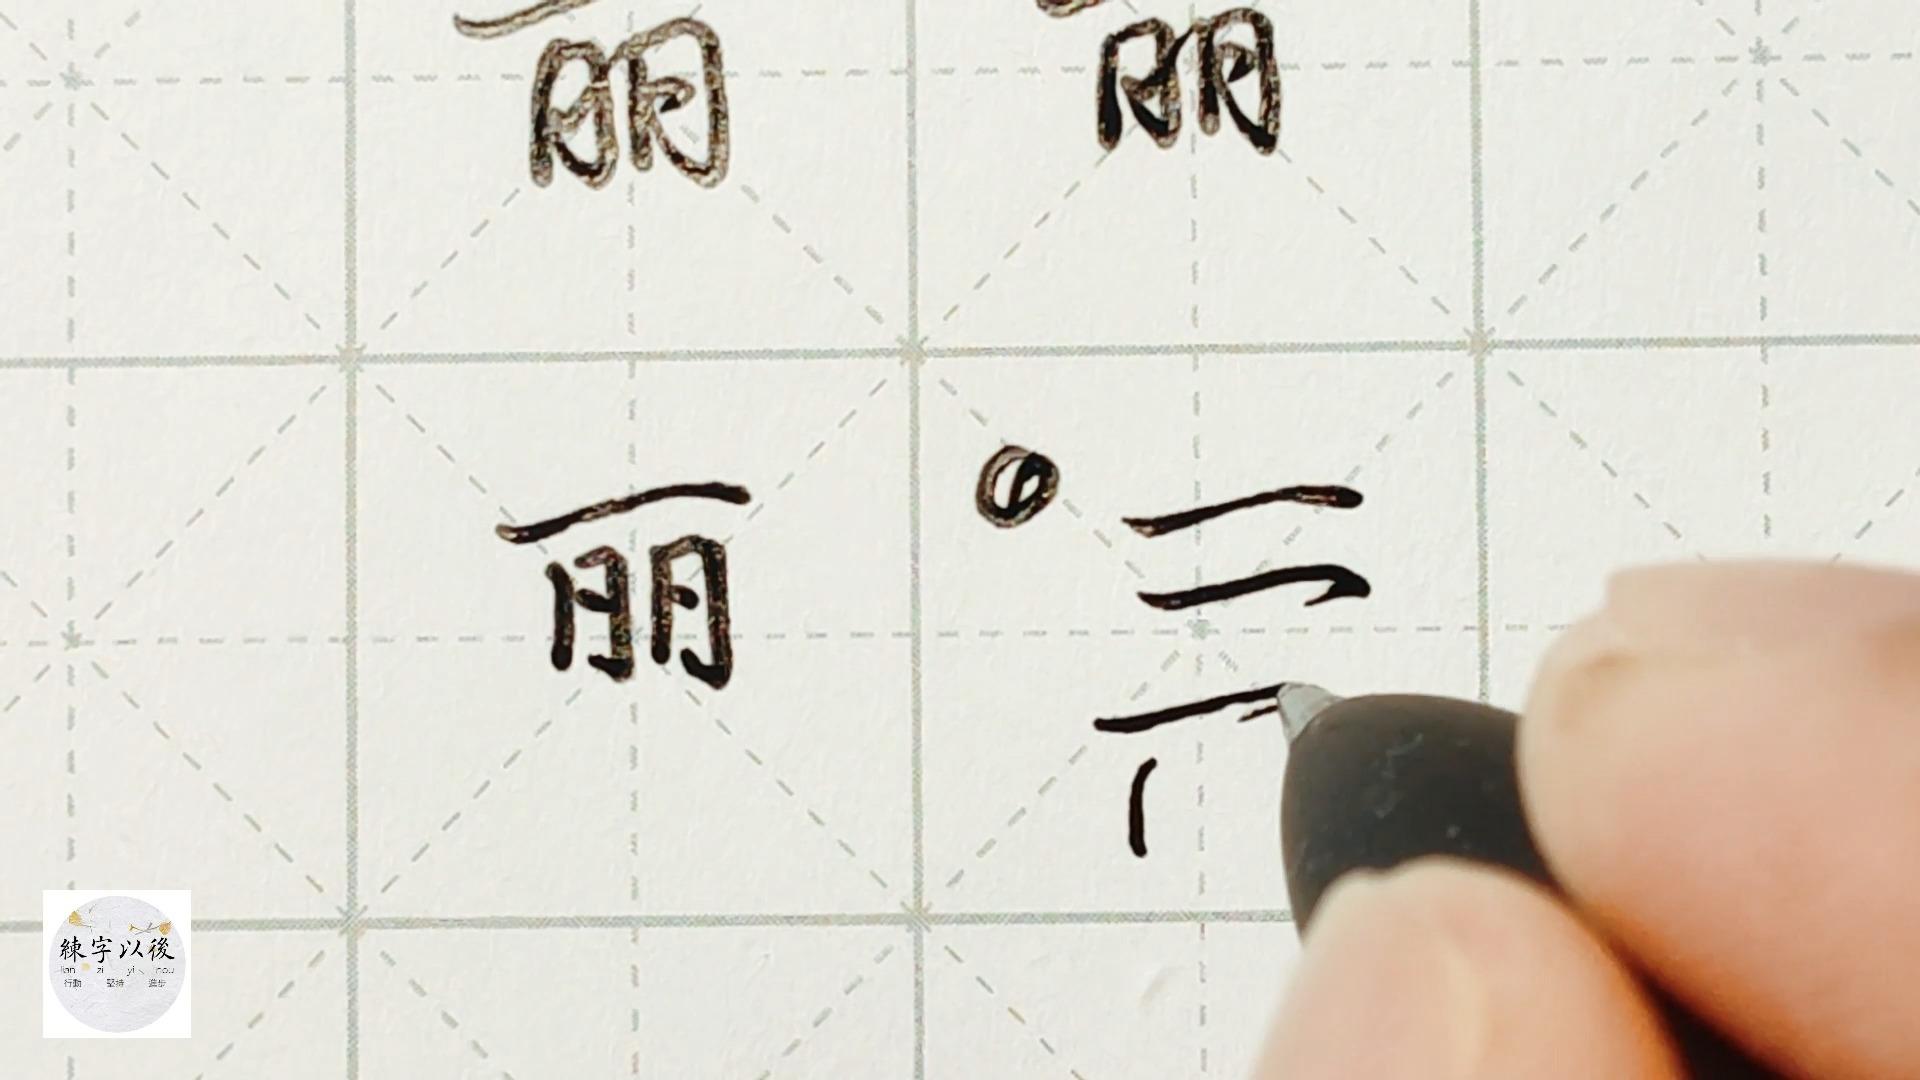 丽 丽
丽
練字以後
lian zi yi hou
行動 堅持 進步